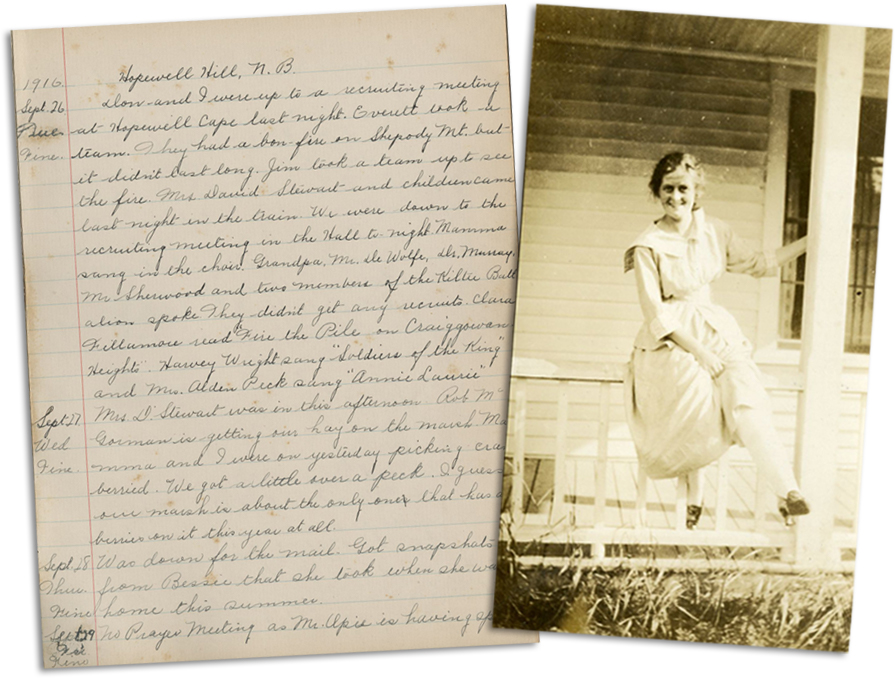 Hopewell Hill, N. B.
1916.
Sept. 26 Don and I were up to a recruiting meeting
Tues at Hopewell Cape last night. Everett took a
Fine. team. They had a bon-fire on Shepody Mt. but
it didn't last long. Jim took a team up to see
the fire. Mrs. David Stewart and children came
last night in the train. We were down to the
recruiting meeting in the Hall to-night. Mamma
sang in the choir. Grandpa, Mr. De Wolfe, Dr. Murray,
Mr. Sherwood and two members of the Kiltie Batt
alion spoke. They didn't get any recruits. Clara
Fillamore read "Fire the Pile on Craiggowan
Heights". Harvey Wright sang "Soldiers of the King"
and Mrs. Alden Peck sang "Annie Laurie"
Sept. 27 Mrs. D. Stewart was in this afternoon Rob Mc
Wed Gorman is getting our hay on the marsh Ma
Fine. mma and I were on yesterday picking cra
berried. We got a little over a peck. I guess
our marsh is about the only one that has
berries on it this year at all.
Sept. 28 Was down for the mail. Got snapshots
Thur. from Bessie that she took when she wa
Fine home this summer.
Sept. 29 No Prayer Meeting as Mr. Opie is having
Fri.
Fine